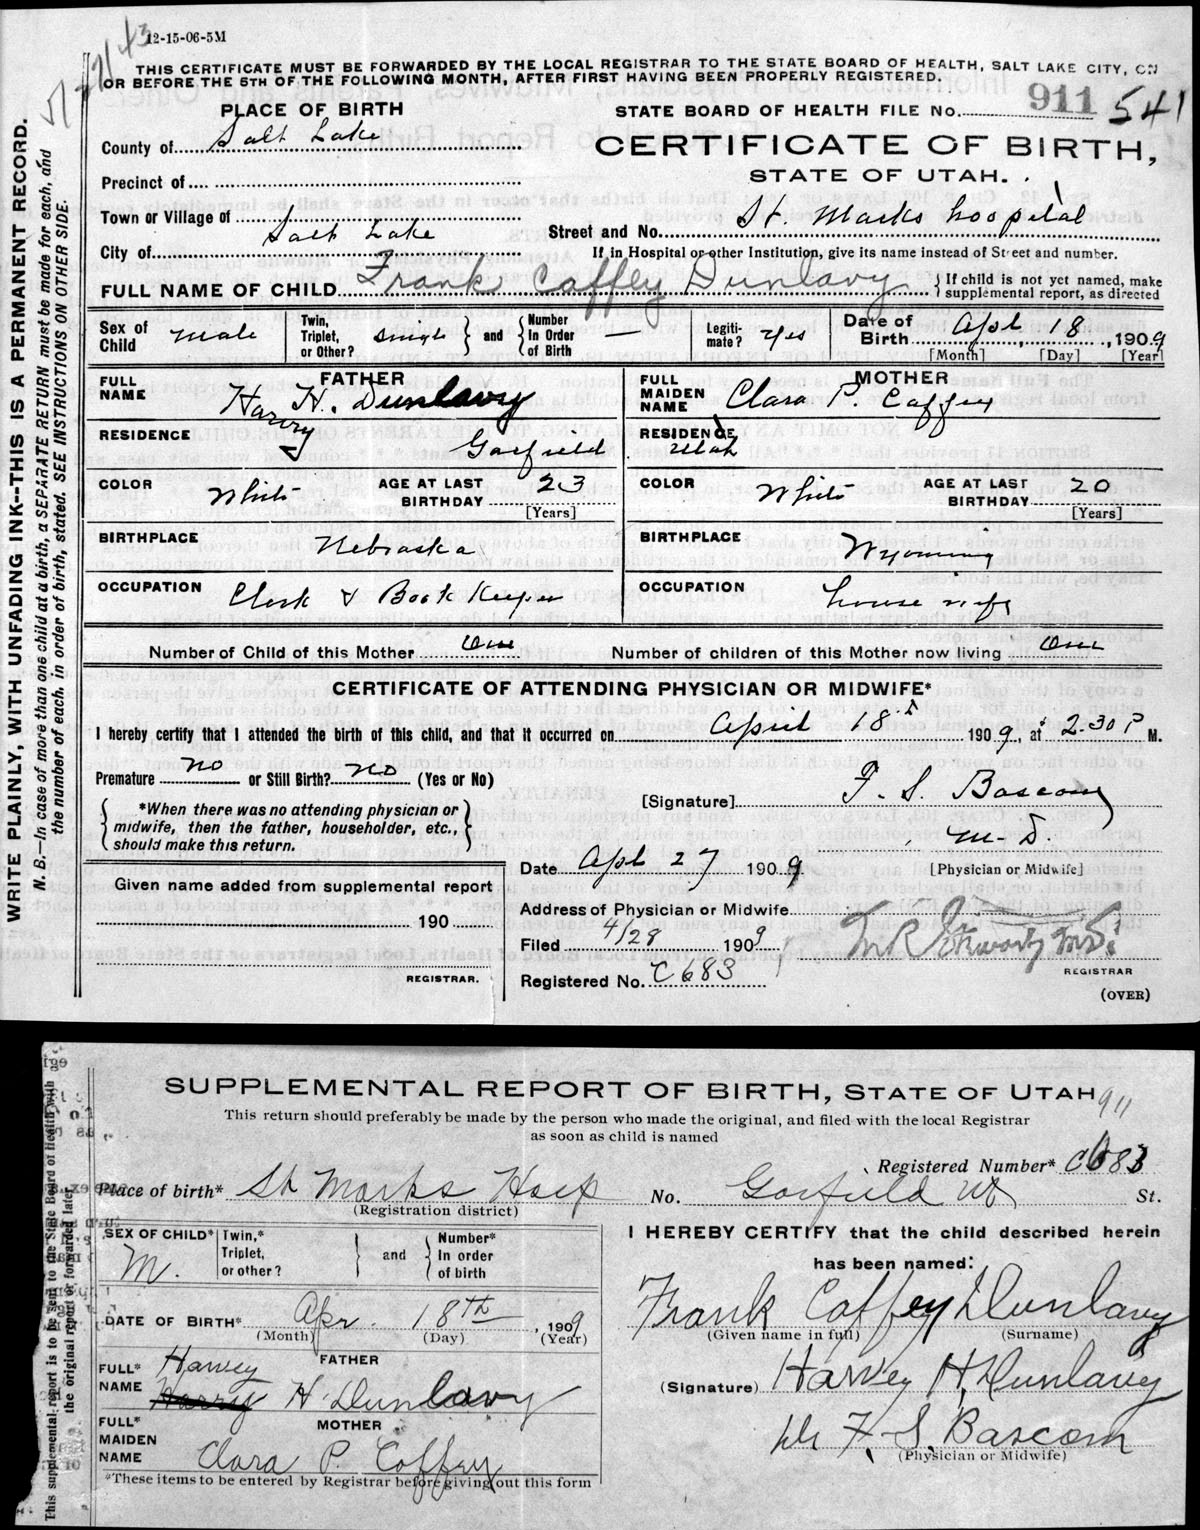 12-15-06-5M
THIS CERTIFICATE MUST BE FORWARDED BY THE LOCAL REGISTRAR TO THE STATE BOARD OF HEALTH, SALT LAKE CITY, ON
OR BEFORE THE 5TH OF THE FOLLOWING MONTH, AFTER FIRST HAVING BEEN PROPERLY REGISTERED.
WRITE PLAINLY, WITH UNFADING INK--THIS IS A PERMANENT RECORD.
N. B.—In case of more than one child at a birth, a SEPARATE RETURN must be made for each, and
the number of each, in order of birth, stated. SEE INSTRUCTIONS ON OTHER SIDE.
PLACE OF BIRTH
STATE BOARD OF HEALTH FILE No. 911 541
County of Salt Lake
CERTIFICATE OF BIRTH,
STATE OF UTAH.
Precinct of
Town or Village of
Street and No. St. Marks hospital
City of Salt Lake
If in Hospital or other Institution, give its name instead of Street and number.
FULL NAME OF CHILD Frank Caffey Dunlavy
If child is not yet named, make
supplemental report, as directed
Sex of Child male
Twin, Triplet, or Other? single and Number In Order of Birth —
Legitimate? yes
Date of Birth Apl 18, 1909
[Month] [Day] [Year]
FATHER
FULL NAME Harry H. Dunlavy
MOTHER
FULL MAIDEN NAME Clara P. Caffey
RESIDENCE Garfield
RESIDENCE Utah
COLOR White
AGE AT LAST BIRTHDAY 23
[Years]
COLOR White
AGE AT LAST BIRTHDAY 20
[Years]
BIRTHPLACE Nebraska
BIRTHPLACE Wyoming
OCCUPATION Clerk & Book Keeper
OCCUPATION house wife
Number of Child of this Mother One
Number of children of this Mother now living One
CERTIFICATE OF ATTENDING PHYSICIAN OR MIDWIFE*
I hereby certify that I attended the birth of this child, and that it occurred on April 18 1909, at 2.30 P M.
Premature no or Still Birth? no (Yes or No)
*When there was no attending physician or
midwife, then the father, householder, etc.,
should make this return.
[Signature] F. S. Bascom
M. D.
[Physician or Midwife]
Given name added from supplemental report
190
REGISTRAR.
Date Apl 27 1909
Address of Physician or Midwife
Filed 4/28 1909
Registered No. C 683
REGISTRAR
(OVER)
SUPPLEMENTAL REPORT OF BIRTH, STATE OF UTAH 911
This return should preferably be made by the person who made the original, and filed with the local Registrar
as soon as child is named
This supplemental report is to be sent to the State Board of Health with
the original report or forwarded later.
Registered Number* C683
Place of birth* St Marks Hosp No. Garfield Ut St.
(Registration district)
SEX OF CHILD* M.
Twin,* Triplet, or other? and Number* In order of birth
I HEREBY CERTIFY that the child described herein
has been named:
Frank Caffey Dunlavy
(Given name in full) (Surname)
DATE OF BIRTH* Apr. 18th, 1909
(Month) (Day) (Year)
FATHER
FULL* NAME Harvey Harry H Dunlavy
(Signature) Harvey H. Dunlavy
MOTHER
FULL* MAIDEN NAME Clara P. Caffey
Dr F. S. Bascom
(Physician or Midwife)
*These items to be entered by Registrar before giving out this form